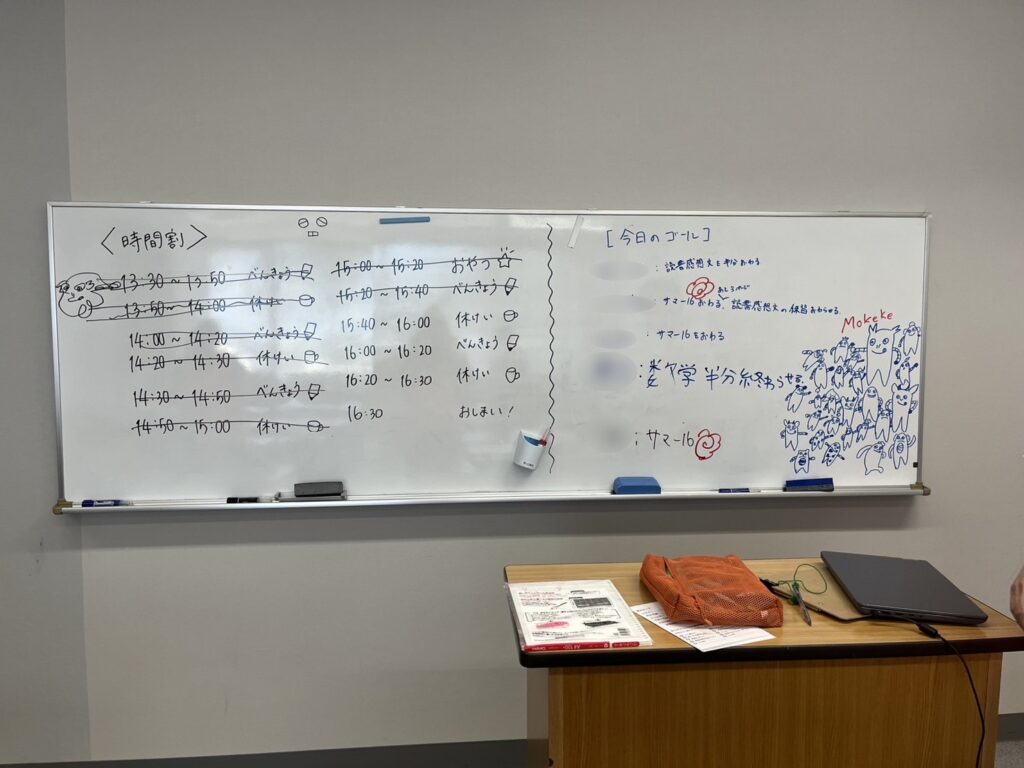 〈時間割〉
13:30~13:50 べんきょう
13:50~14:00 休けい
14:00~14:20 べんきょう
14:20~14:30 休けい
14:30~14:50 べんきょう
14:50~15:00 休けい
15:00~15:20 おやつ
15:20~15:40 べんきょう
15:40~16:00 休けい
16:00~16:20 べんきょう
16:20~16:30 休けい
16:30 おしまい!
[今日のゴール]
:読書感想文を半分おわる
:サマー16おわる、読書感想文の練習おわらせる
:サマー16をおわる
:数学半分終わらせる
;サマー16
Mokeke